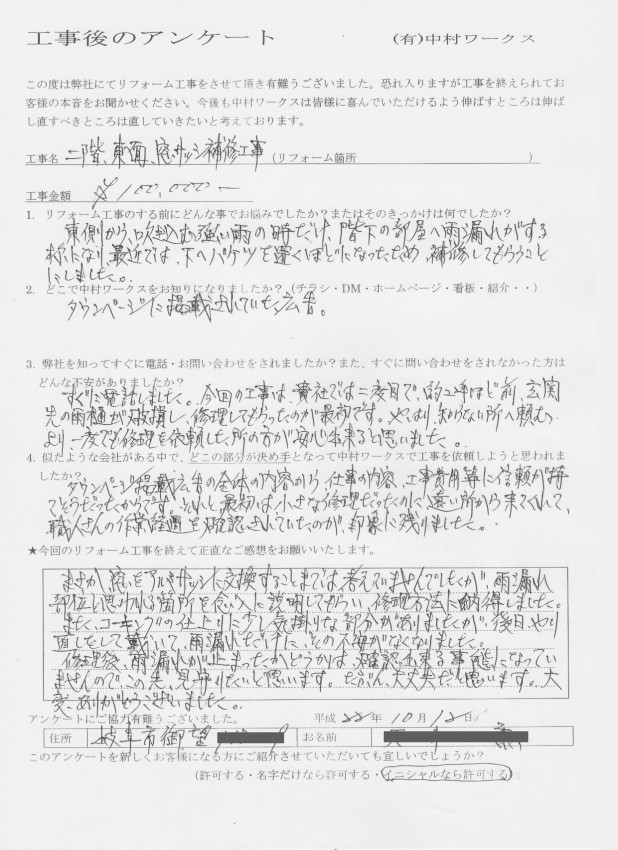 工事後のアンケート　(有)中村ワークス
この度は弊社にてリフォーム工事をさせて頂き有難うございました。恐れ入りますが工事を終えられてお
客様の本音をお聞かせください。今後も中村ワークスは皆様に喜んでいただけるよう伸ばすところは伸ば
し直すべきところは直していきたいと考えております。
工事名 二階、東面、窓サッシ補修工事 (リフォーム箇所 )
工事金額 ¥100,000.-
1. リフォーム工事のする前にどんな事でお悩みでしたか？またはそのきっかけは何でしたか？
東側から、吹き込む強い雨の時だけ、階下の部屋へ雨漏れがする
様になり、最近では、下へバケツを置くほどになったため、補修してもらうこと
にしました。
2. どこで中村ワークスをお知りになりましたか？（チラシ・DM・ホームページ・看板・紹介・・）
タウンページに掲載されていた広告。
3. 弊社を知ってすぐに電話・お問い合わせをされましたか？また、すぐに問い合わせをされなかった方は
どんな不安がありましたか？
すぐに電話しました。今回の工事は、貴社では二度目で、約2年ほど前、玄関
先の雨樋が破損し、修理してもらったのが最初です。やはり、知らない所へ頼む
より、一度でも修理を依頼した所の方が安心出来ると思いました。
4. 似たような会社がある中で、どこの部分が決め手となって中村ワークスで工事を依頼しようと思われま
したか？
タウンページ掲載広告の全体の内容から、仕事の内容、工事費用等に信頼が持
てそうだったからです。それと、最初は小さな修理だったのに、遠い所から来てくれて、
職人さんの作業経過を確認されていたのが、印象に残りました。
★今回のリフォーム工事を終えて正直なご感想をお願いいたします。
まさか、窓をアルミサッシに交換することまでは、考えていませんでしたが、雨漏れ
部位と思われる箇所を念入に説明してもらい、修理方法に納得しました。
また、コーキングの仕上りに少し気掛りな部分がありましたが、後日、やり
直しをして戴いて、雨漏れだけに、その不安がなくなりました。
修理後、雨漏れが止まったかどうかは、確認出来る事態になってい
ませんので、この先、見守りたいと思います。たぶん、大丈夫だと思います。大
変、ありがとうございました。
アンケートにご協力有難うございました。　平成 22年 10月 12日
住所 岐阜市御望 お名前
このアンケートを新しくお客様になる方にご紹介させていただいても宜しいでしょうか？
(許可する・名字だけなら許可する・イニシャルなら許可する)